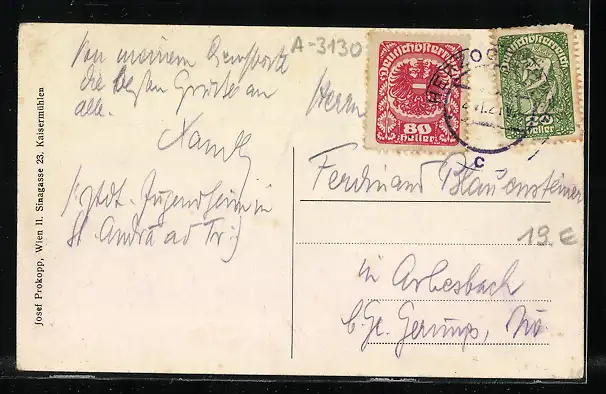 A-3130
Von meinem Dienstorte
die besten Grüße an
alle.
(städt. Jugendheim in
St. Andrä ad Tr.)
Josef Prokopp, Wien II. Sinagasse 23, Kaisermühlen
Deutschösterreich
80
Heller
Deutschösterreich
20
Heller
C
Herrn
Ferdinand Blauensteiner
19.€
in Arbesbach
b. Gr. Gerungs, Nö.